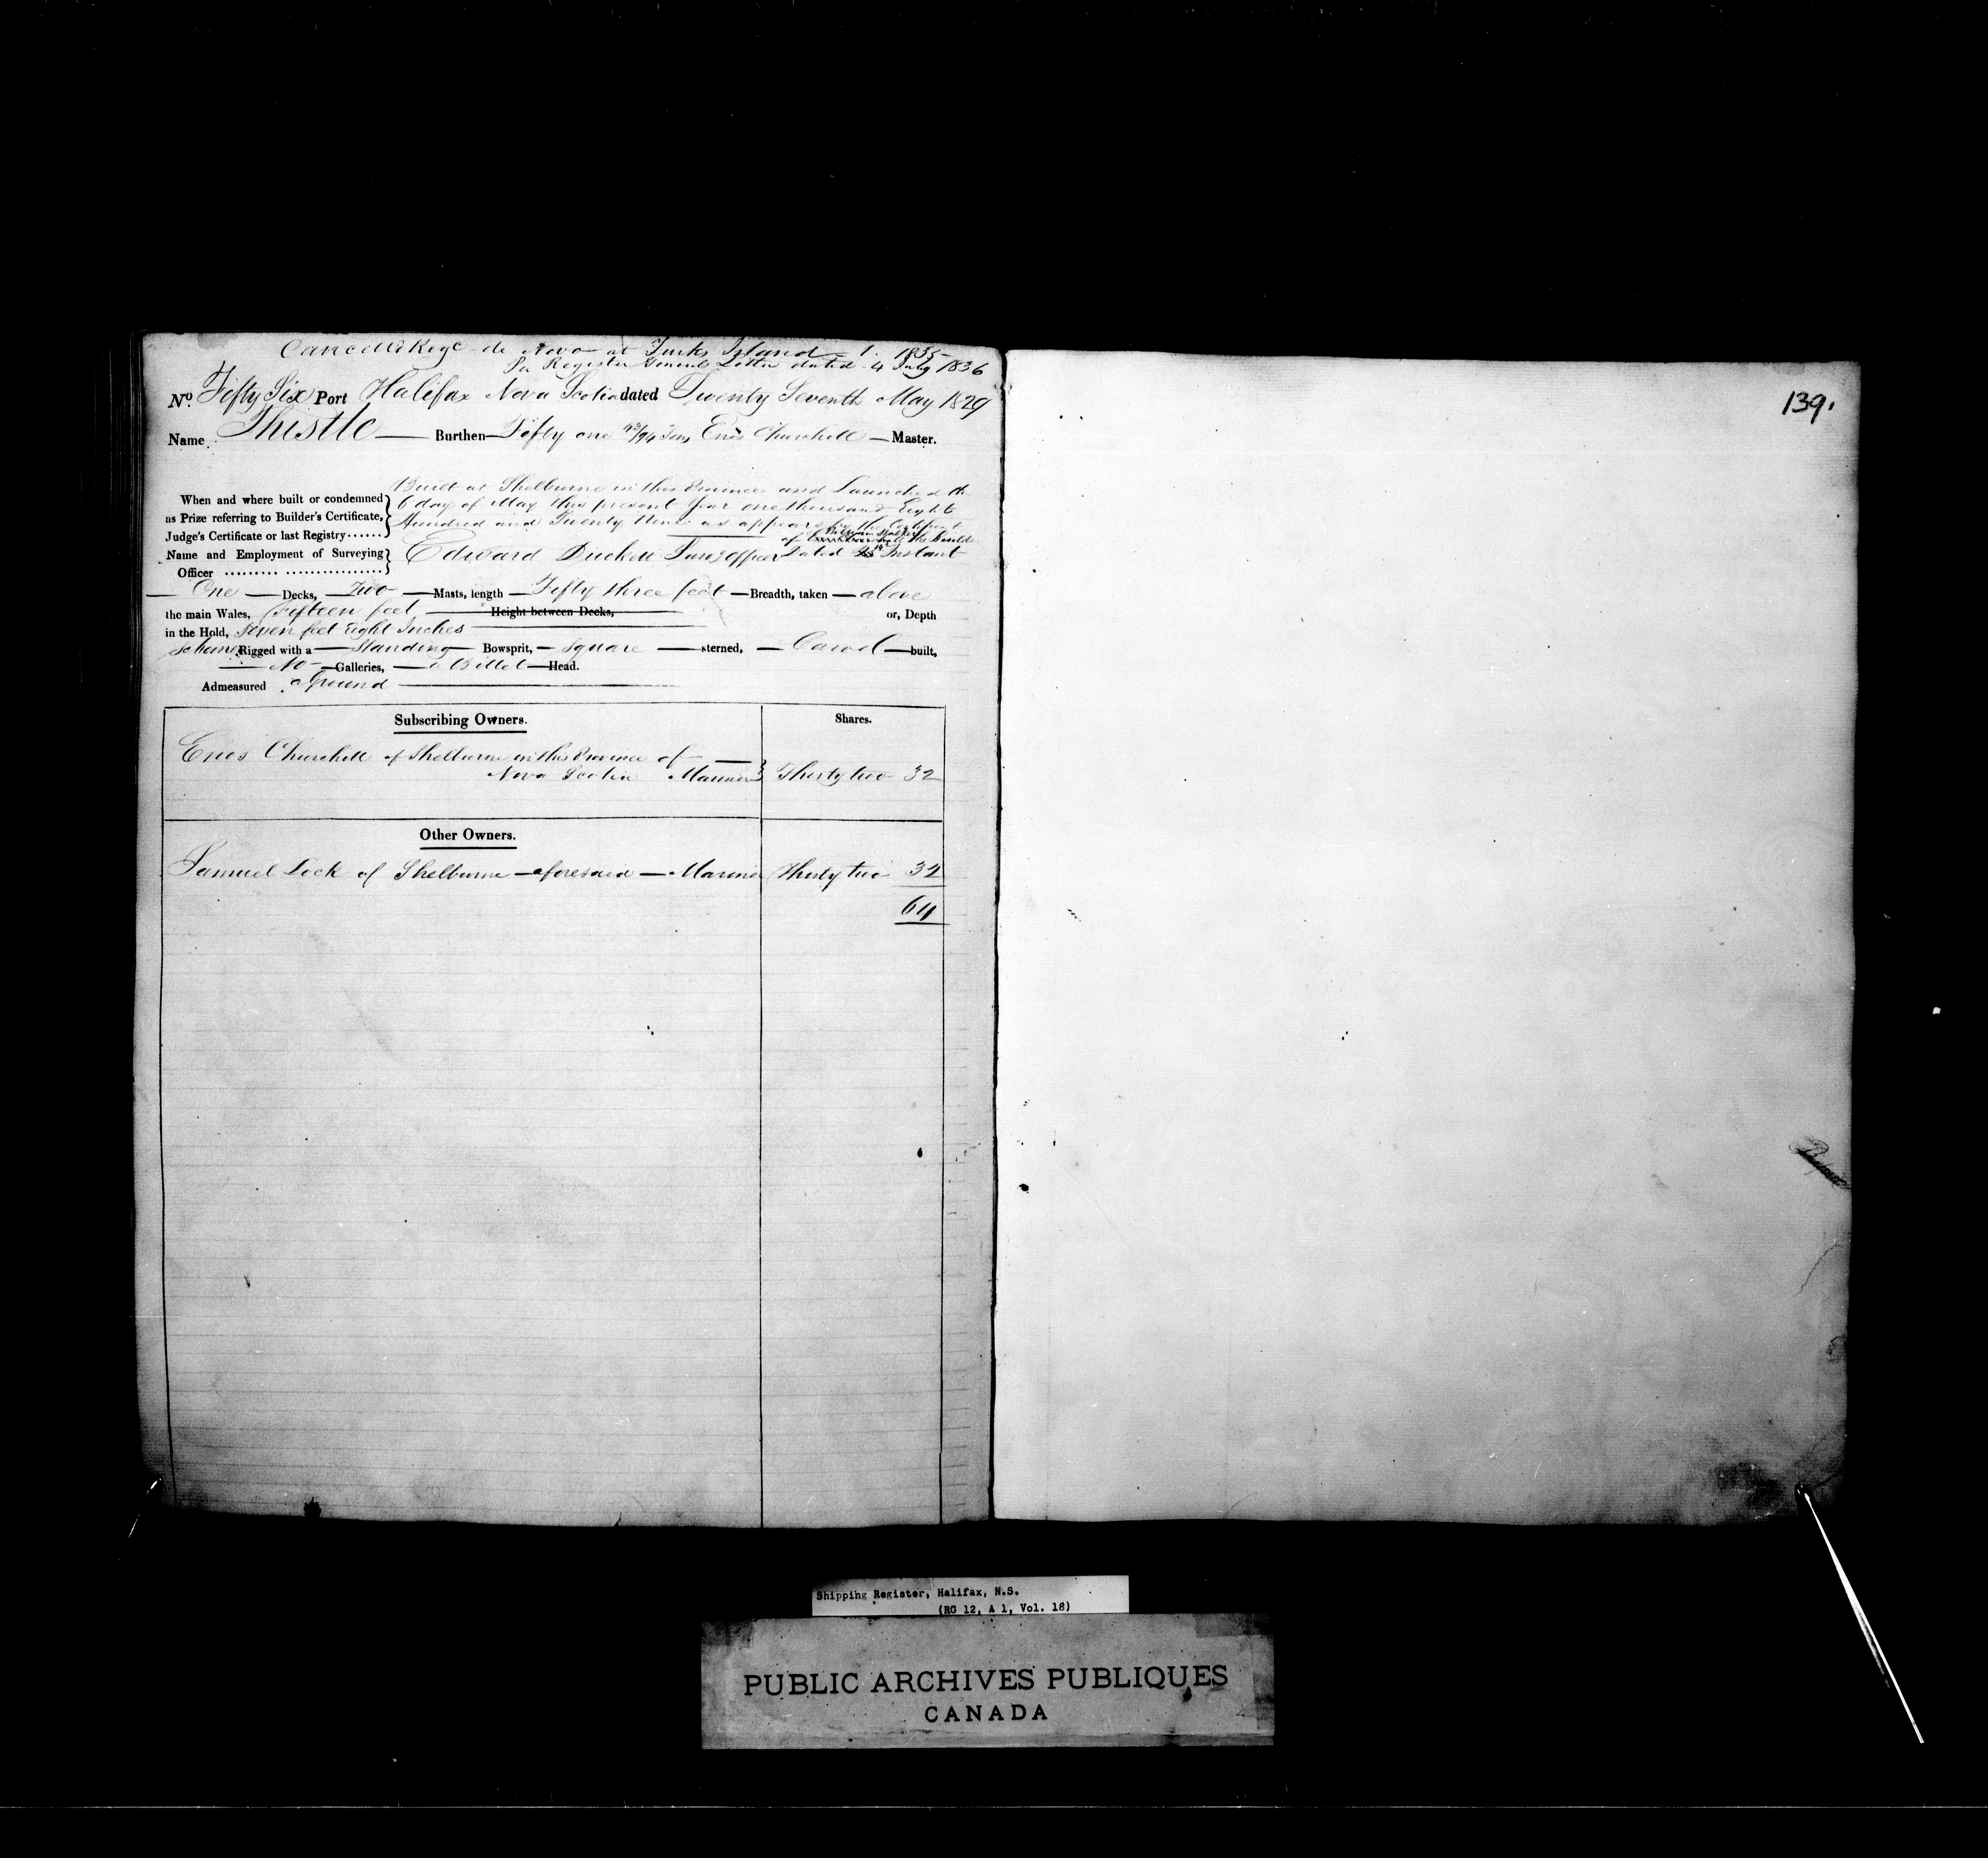 Cancelld Regd de Novo at Turks Island 1. 1835
Per Register Generals Letter dated 4 July 1836
No. Fifty Six Port Halifax Nova Scotia dated Twenty Seventh May 1829
Name Thistle Burthen Fifty one 43/94 Tons Enos Churchill Master.
Built at Shelburne in this Province and Launched the
When and where built or condemned 6 day of May this present Year one thousand Eight
as Prize referring to Builder's Certificate, Hundred and Twenty Nine as appears by the Certificate
Judge's Certificate or last Registry of the Builder
Name and Employment of Surveying Edward Duckett Survg Officer Dated Instant
Officer
One Decks, Two Masts, length Fifty three feet Breadth, taken above
the main Wales, fifteen feet Height between Decks, or, Depth
in the Hold, Seven feet Eight Inches
Schooner Rigged with a Standing Bowsprit, Square sterned, Carvel built,
No Galleries, a Billet Head.
Admeasured aGround
Subscribing Owners. Shares.
Enos Churchill of Shelburne in this Province of
Nova Scotia Mariner Thirty two 32
Other Owners.
Samuel Lock of Shelburne aforesaid Mariner Thirty two 32
64
139.
Shipping Register, Halifax, N.S.
(RG 12, A 1, Vol. 18)
PUBLIC ARCHIVES PUBLIQUES
CANADA